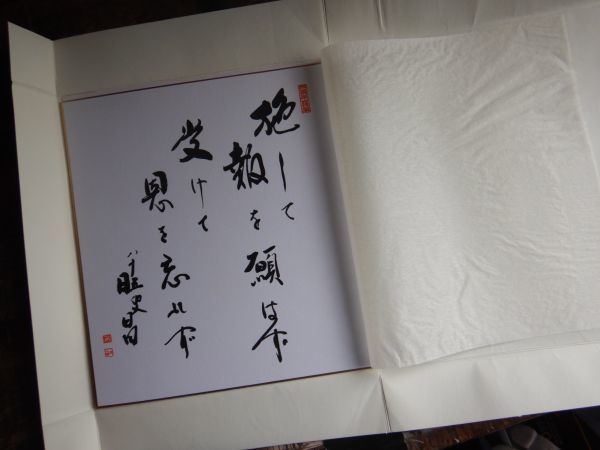 施して
報を願はず
受けて
恩を忘れず